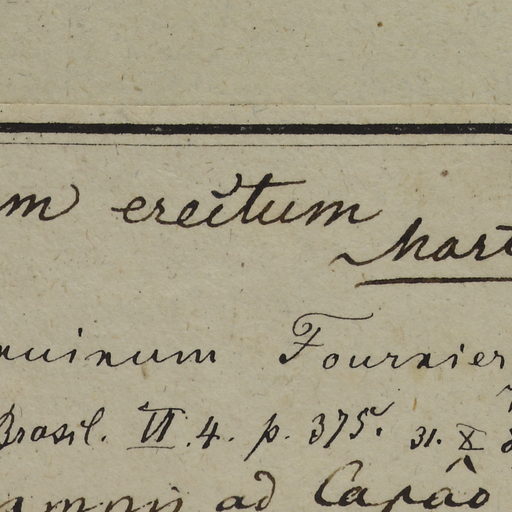 m erectum
Mart
nuinum Fournier
Brasil. VI. 4. p. 375. 31. X
ad Capâo